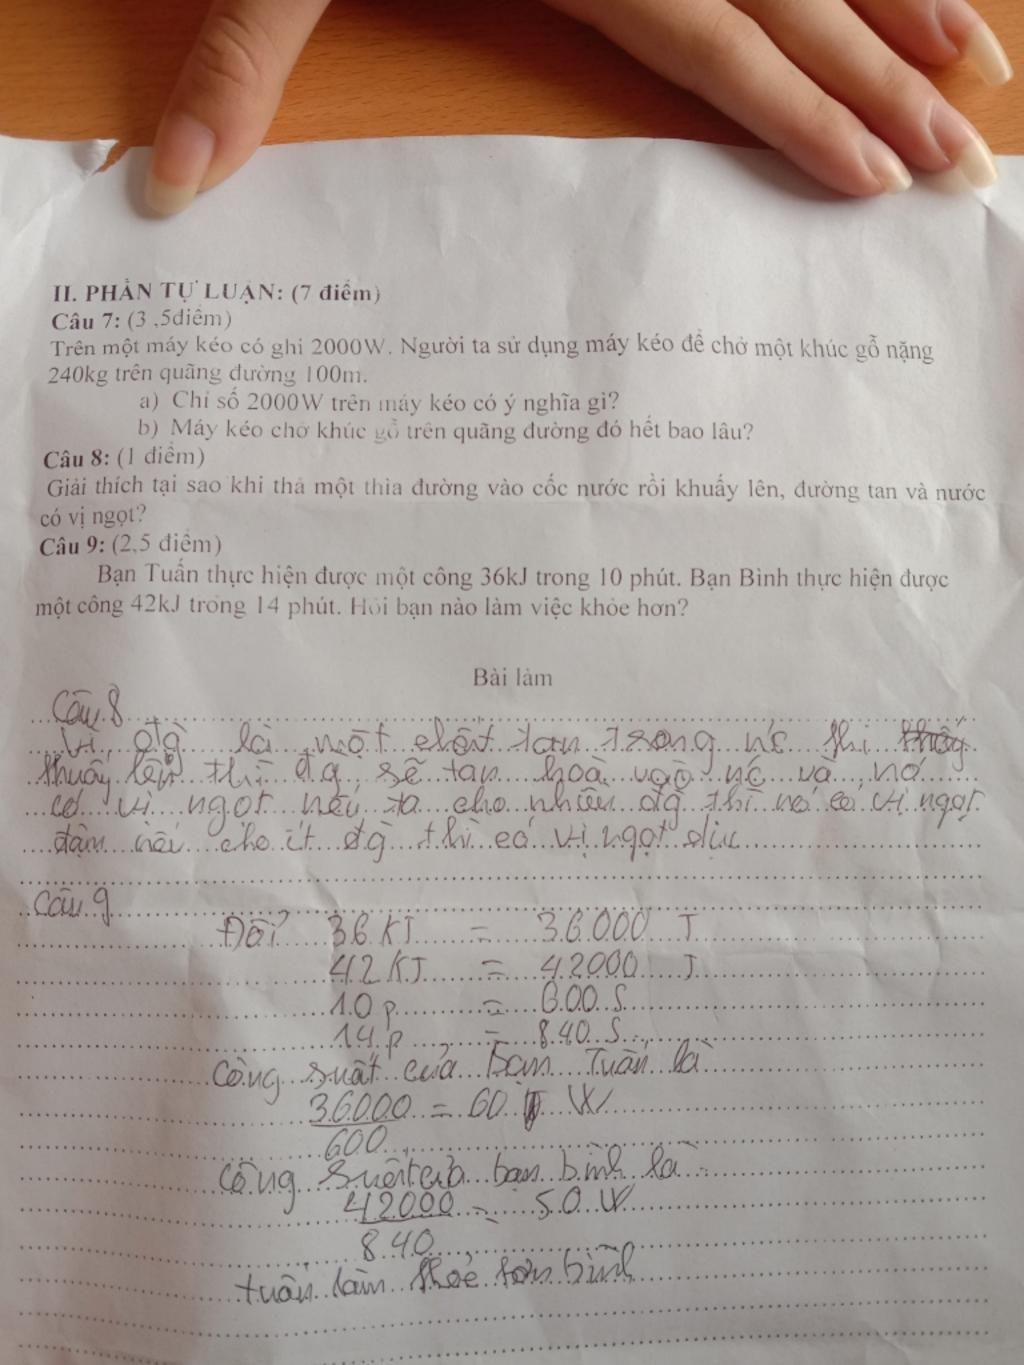 II. PHẦN TỰ LUẬN: (7 điểm)
Câu 7: (3 ,5điểm)
Trên một máy kéo có ghi 2000W. Người ta sử dụng máy kéo để chở một khúc gỗ nặng
240kg trên quãng đường 100m.
a) Chỉ số 2000W trên máy kéo có ý nghĩa gì?
b) Máy kéo chở khúc gỗ trên quãng đường đó hết bao lâu?
Câu 8: (1 điểm)
Giải thích tại sao khi thả một thìa đường vào cốc nước rồi khuấy lên, đường tan và nước
có vị ngọt?
Câu 9: (2,5 điểm)
Bạn Tuấn thực hiện được một công 36kJ trong 10 phút. Bạn Bình thực hiện được
một công 42kJ trong 14 phút. Hỏi bạn nào làm việc khỏe hơn?
Bài làm
Câu 8
Vì đg là một chất tan trong nc khi
khuấy lên thì đg sẽ tan hoà vào nc và nó
có vị ngọt nếu ta cho nhiều đg thì nó có vị ngọt
đậm nếu cho ít đg thì có vị ngọt dịu
Câu 9
Đổi 36 KJ = 36000 J
42 KJ = 42000 J
10 p = 600 S
14 p = 840 S
Công suất của bạn Tuấn là
36000 = 60 W
600
Công suất của bạn bình là
42000 = 50 W
840
tuấn làm khỏe hơn bình